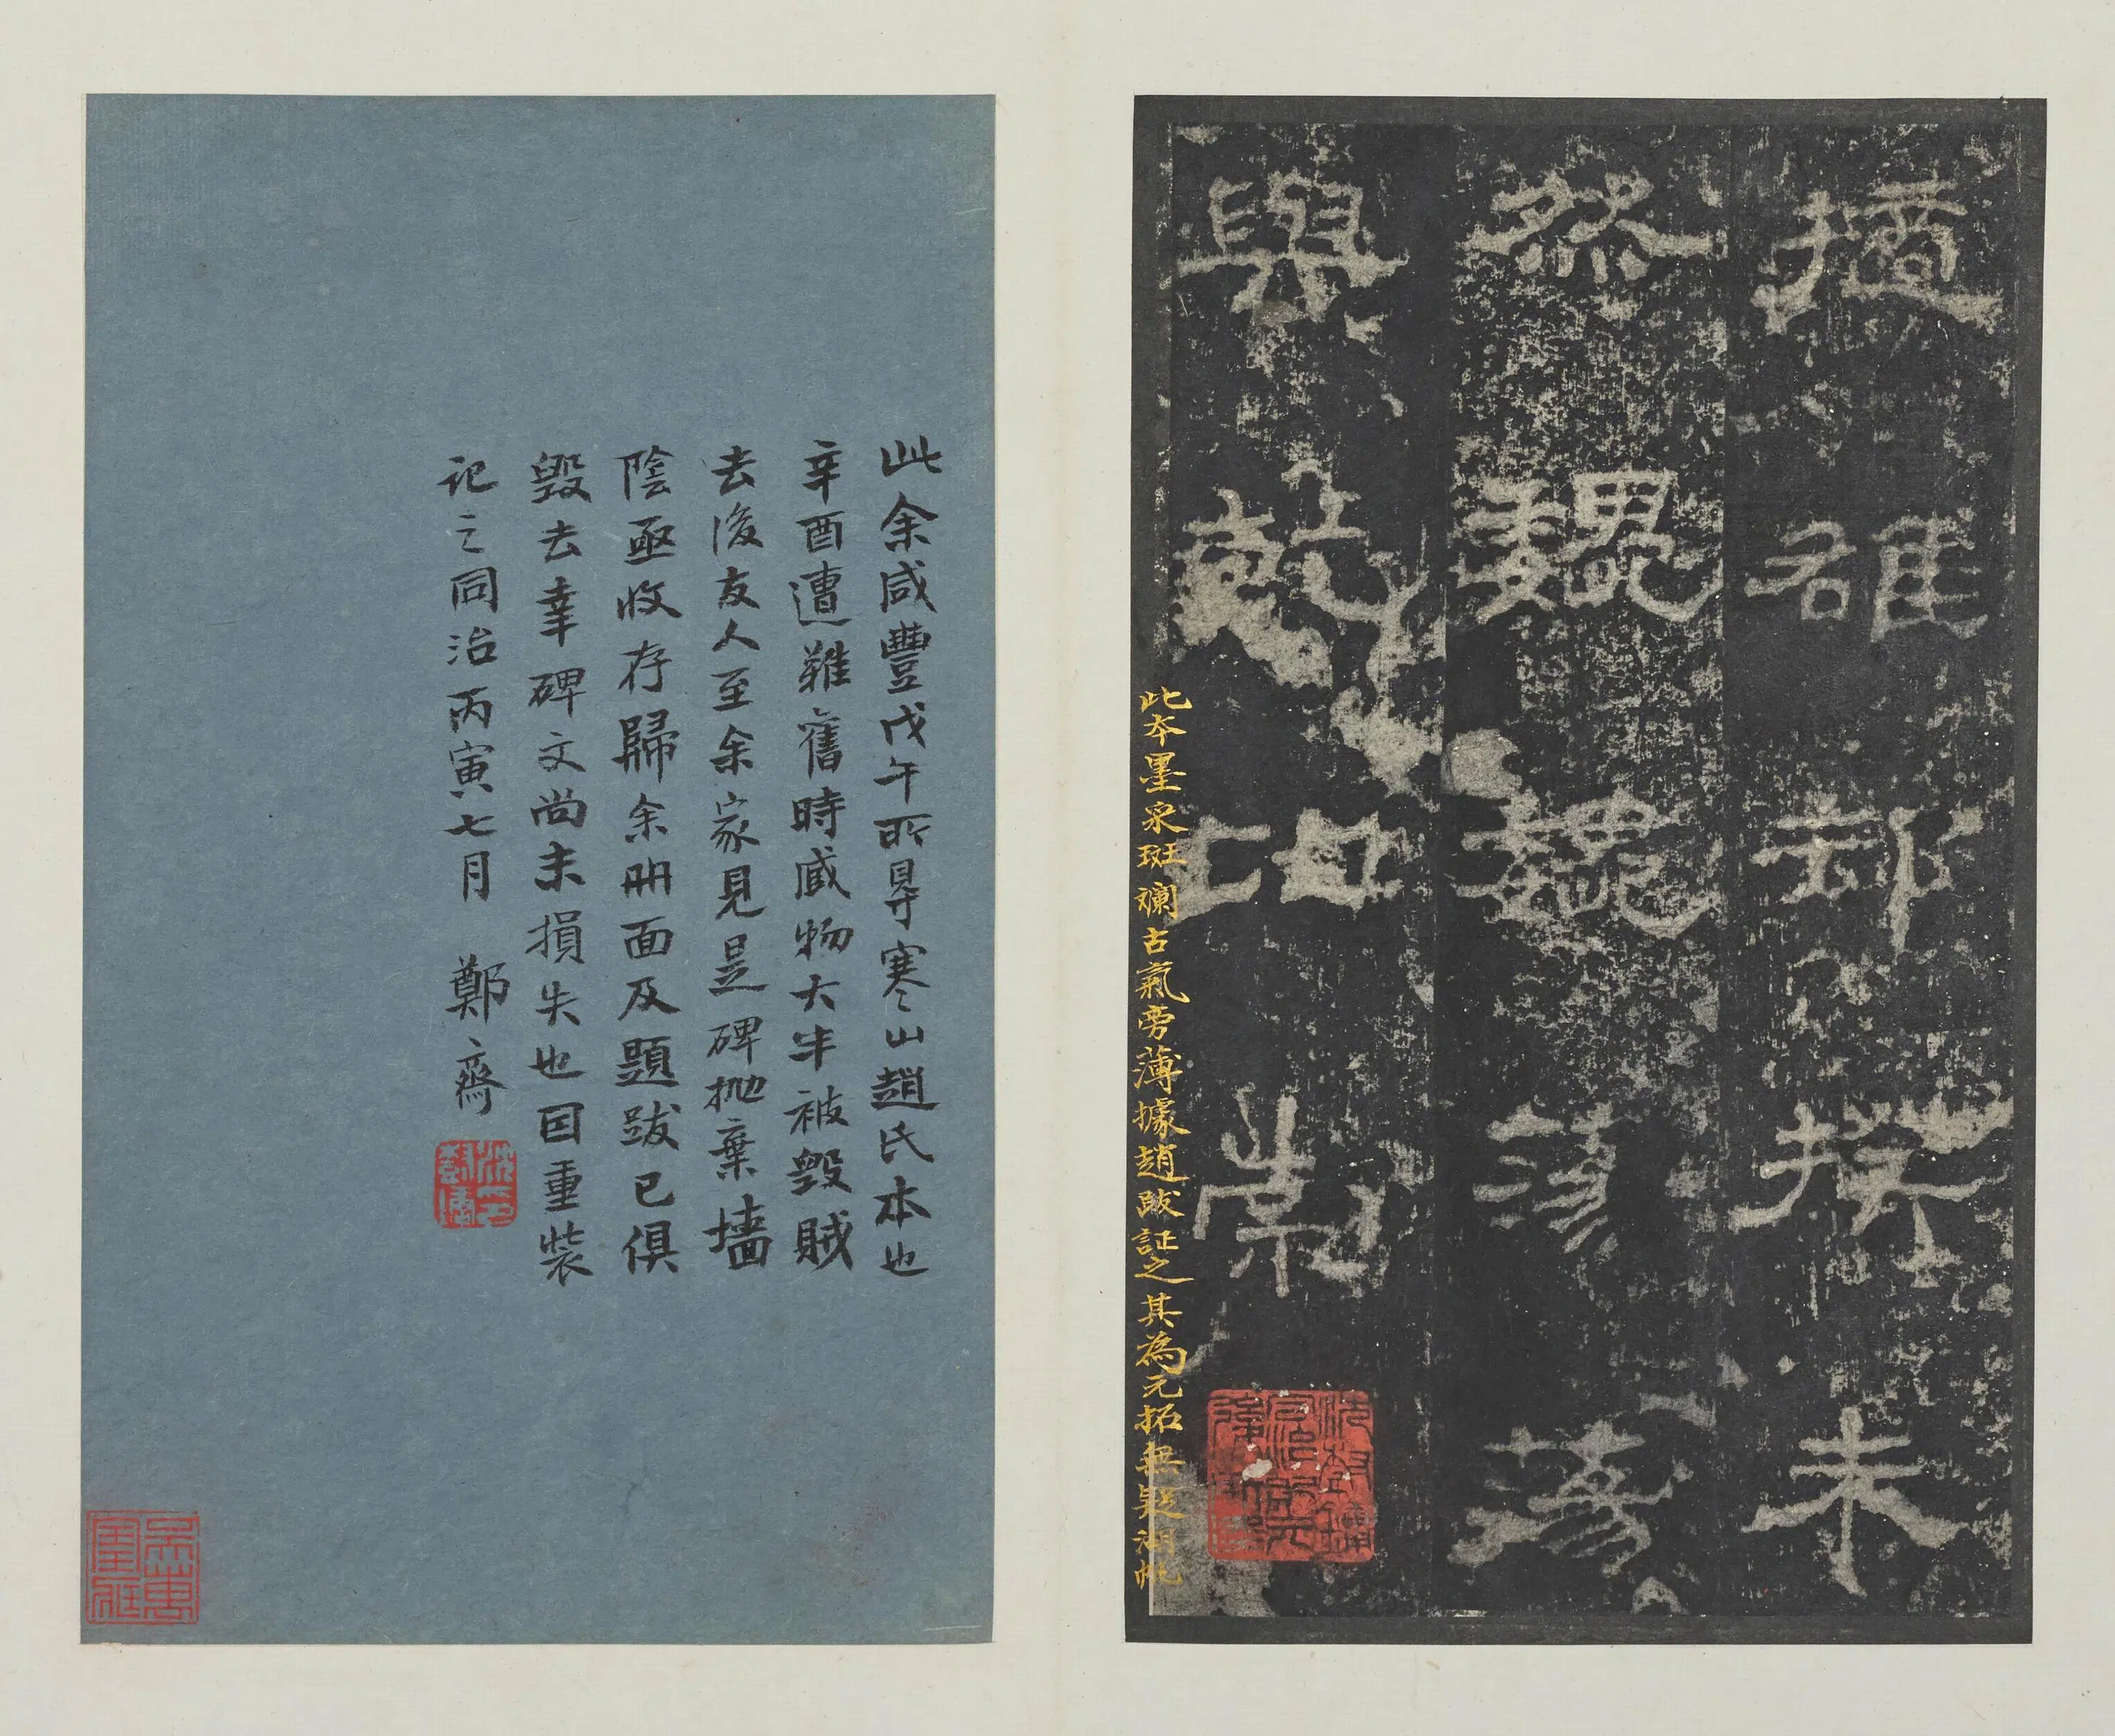 擿雒却揆未
然巍巍蕩蕩
與乾比崇
此本墨采斑斕古氣旁薄據趙跋証之其為元拓無疑湖帆
此余咸豐戊午所㝵寒山趙氏本也
辛酉遭難舊時臧物大半被毀賊
去後友人至余家見是碑拋棄墻
陰亟收存歸余冊面及題跋已俱
毀去幸碑文尚未損失也因重裝
記之同治丙寅七月 鄭齋